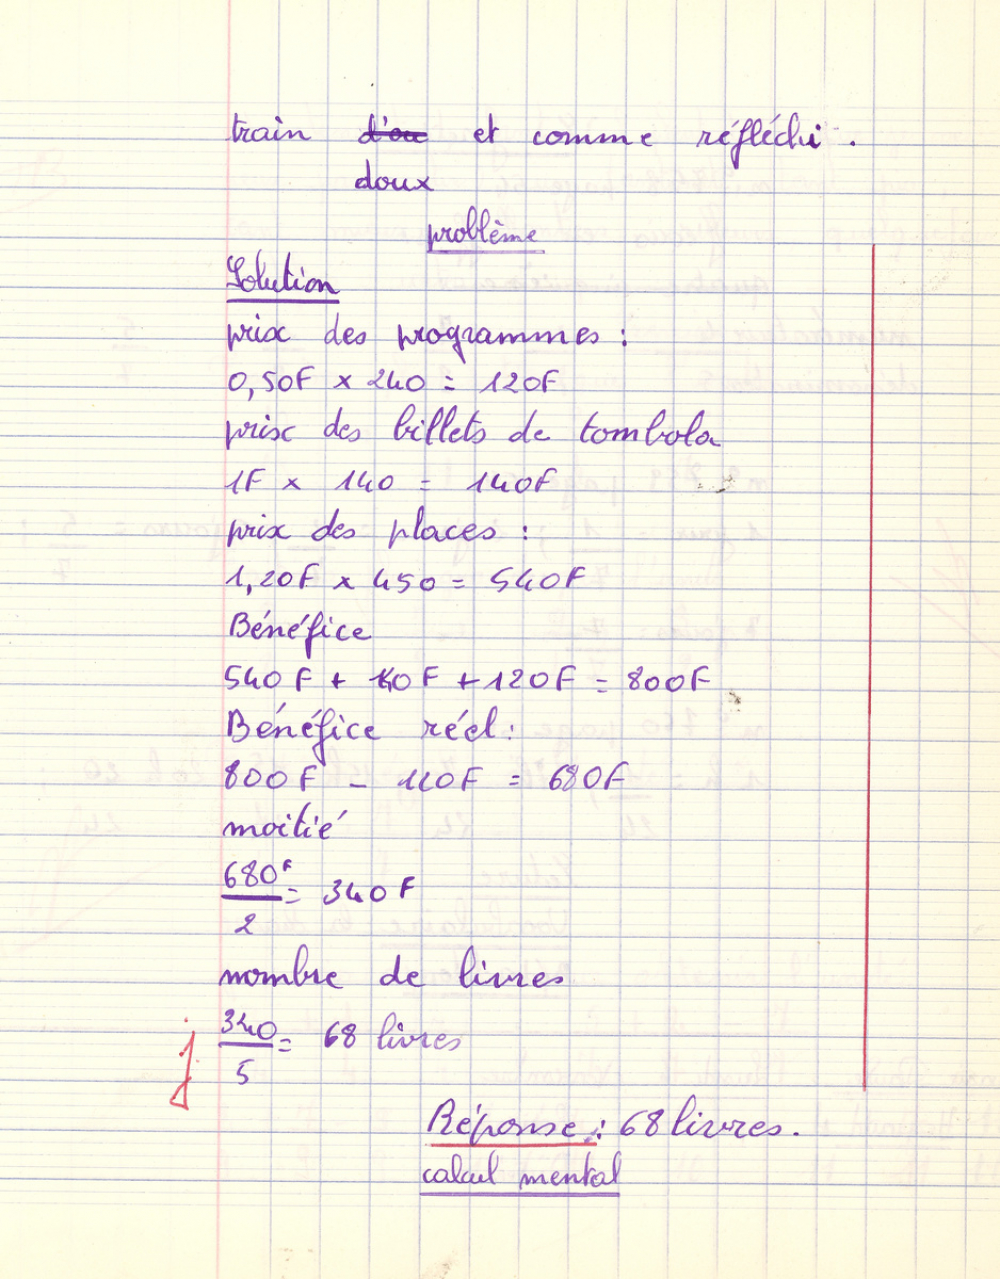 train d'ou et comme réfléchi.
doux
problème
Solution
prix des programmes :
0,50F x 240 = 120F
prix des billets de tombola
1F x 140 = 140F
prix des places :
1,20F x 450 = 540F
Bénéfice
540F + 140F + 120F = 800F
Bénéfice réel :
800F - 120F = 680F
moitié
680F
= 340F
2
nombre de livres
340
= 68 livres
5
Réponse : 68 livres.
calcul mental